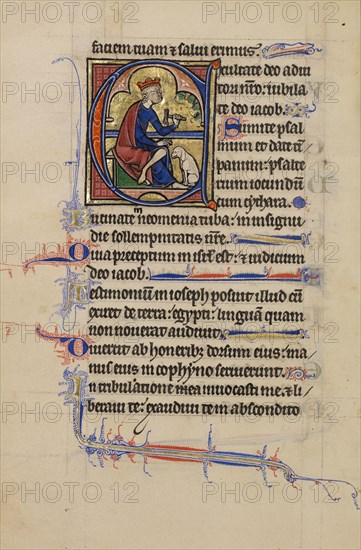 faciem tuam & salui erimus.
E xultate deo adiu
tori nrō. iubila
te deo iacob.
Sumite psal
mum et date tȳ
panum: psalte
rium iocundū
cum cythara.
Bucinate ī neomenia tuba: in insigni
die sollempnitatis nr̄e.
Quia preceptum in isrl̄ est: & iudicium
deo iacob.
Testimonium in ioseph posuit illud cū
exiret de terra egypti: linguam quam
non nouerat audiuit.
Diuertit ab honeribꝫ dorsum eius: ma
nus eius in cophyno seruierunt.
In tribulatione mea inuocasti me. & li
beraui te: exaudiui te in abscondito
PHOTO12